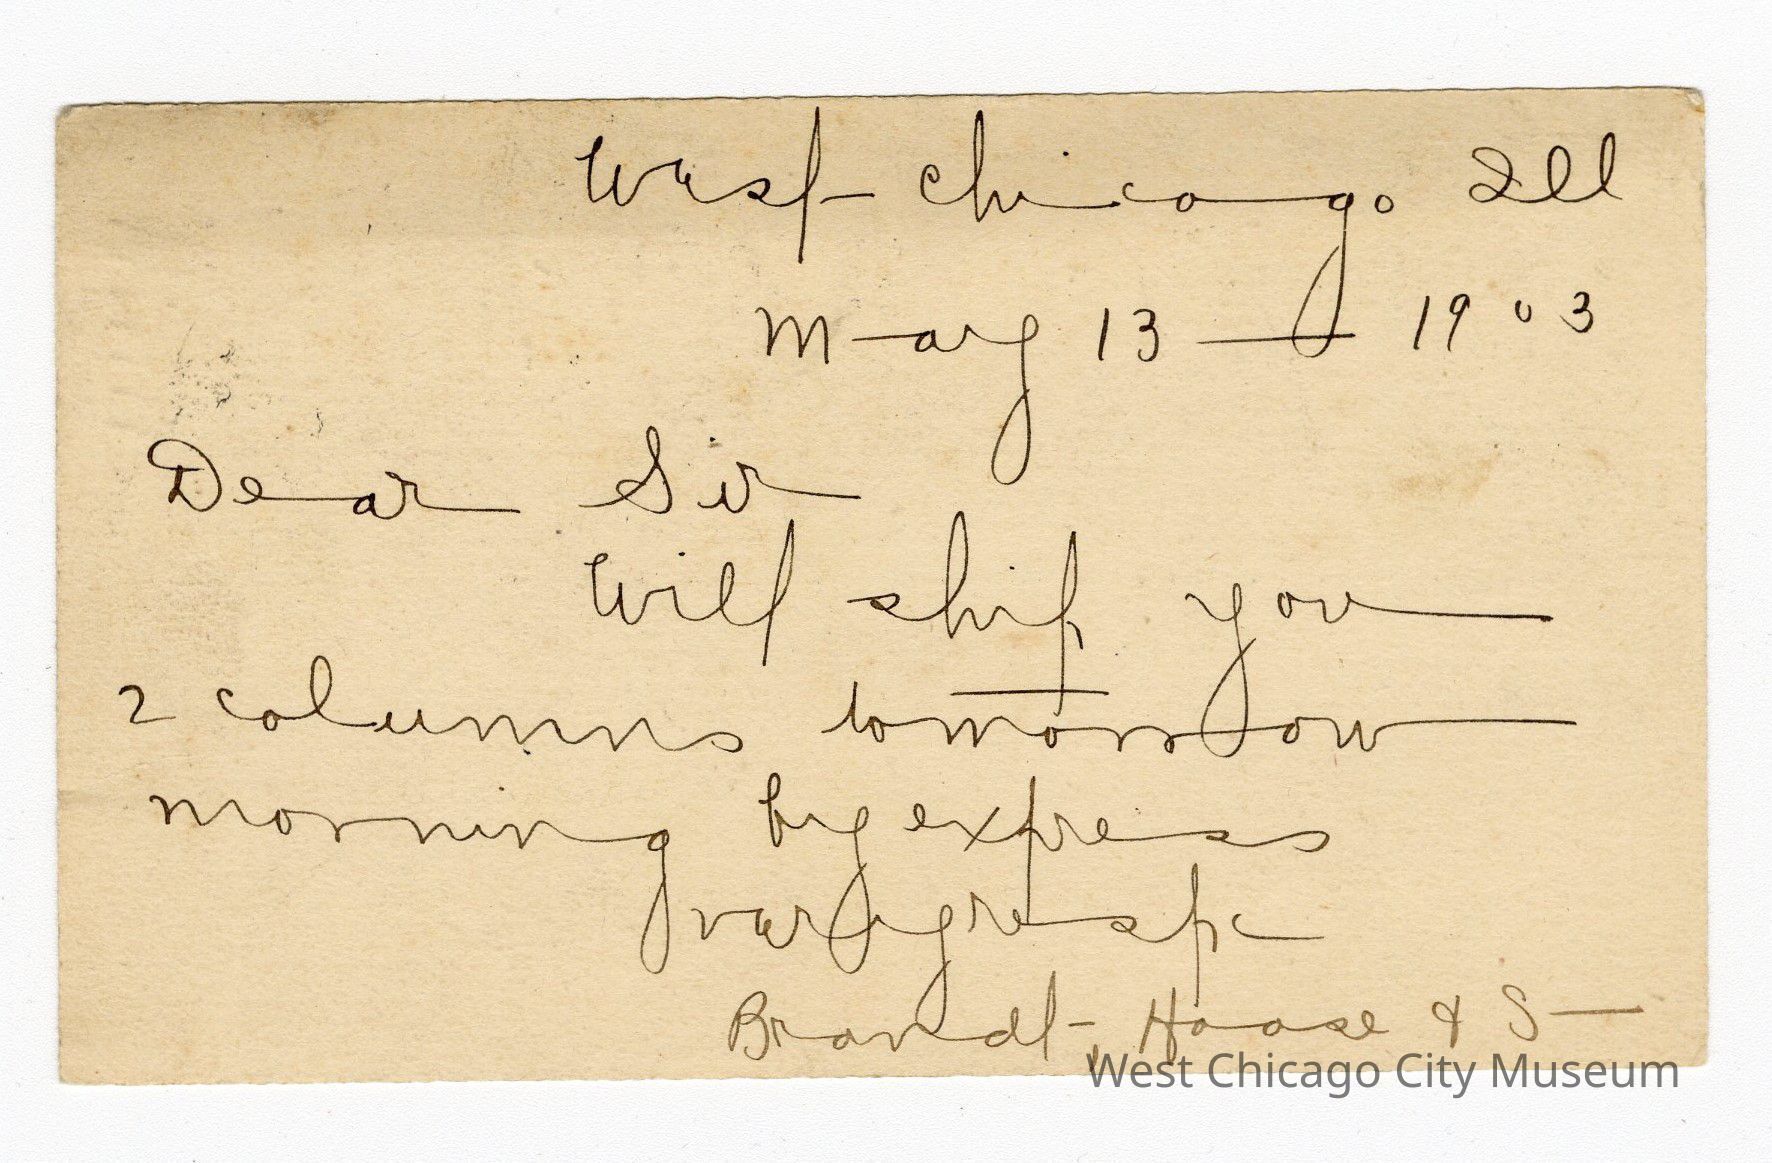 West Chicago Ill
May 13 — 1903
Dear Sir
Will ship you
2 columns tomorrow
morning by express
very resp
Brandt, Haase & S—
West Chicago City Museum